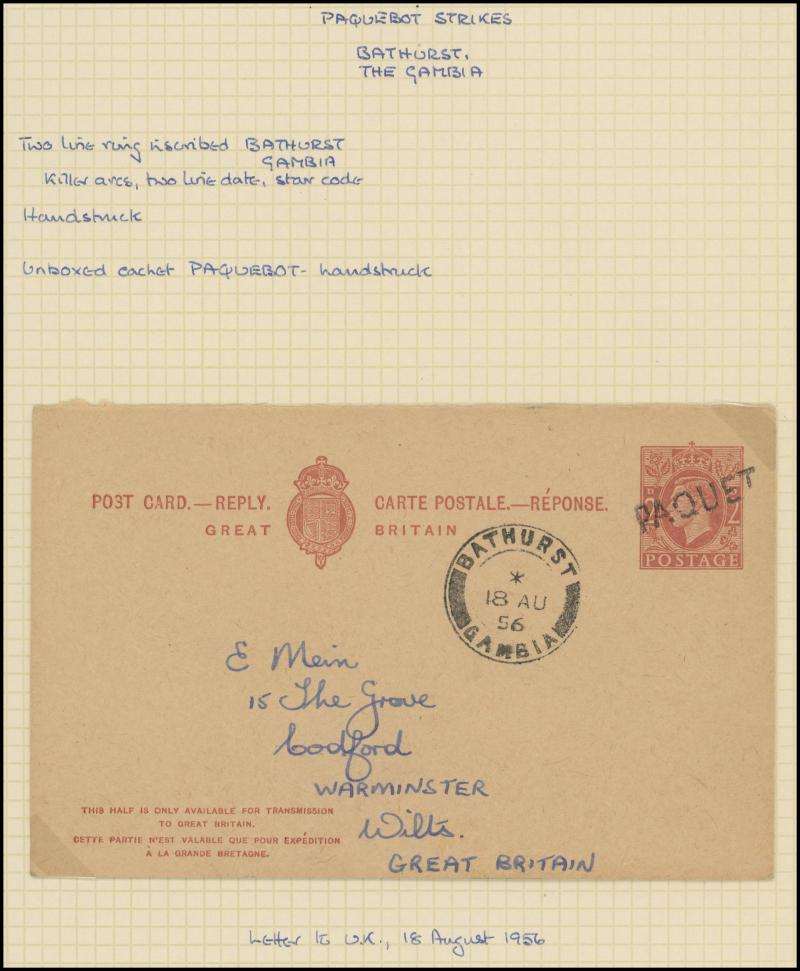 PAQUEBOT STRIKES
BATHURST,
THE GAMBIA
Two line ring inscribed BATHURST
GAMBIA
Killer arcs, two line date, star code
Handstruck
Unboxed cachet PAQUEBOT - handstruck
POST CARD.—REPLY. CARTE POSTALE.—RÉPONSE.
GREAT BRITAIN
PAQUET
D 2
POSTAGE
BATHURST
*
18 AU
56
GAMBIA
E Mein
15 The Grove
Codford
WARMINSTER
Wilts.
GREAT BRITAIN
THIS HALF IS ONLY AVAILABLE FOR TRANSMISSION
TO GREAT BRITAIN.
CETTE PARTIE N'EST VALABLE QUE POUR EXPÉDITION
À LA GRANDE BRETAGNE.
Letter to U.K., 18 August 1956